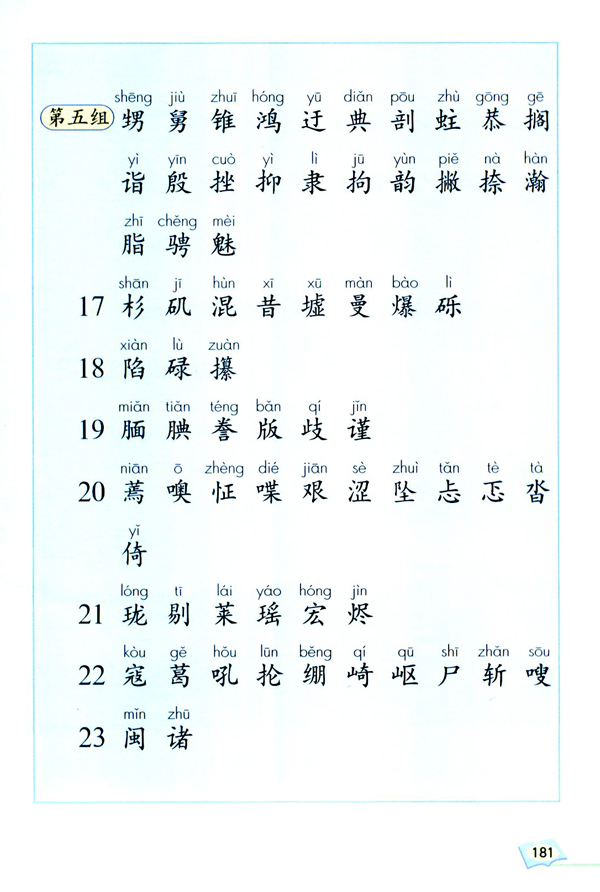 shēng jiù zhuī hóng yū diǎn pōu zhù gōng gē
第五组 甥 舅 锥 鸿 迂 典 剖 蛀 恭 搁
yì yīn cuò yì lì jū yùn piě nà hàn
诣 殷 挫 抑 隶 拘 韵 撇 捺 瀚
zhī chěng mèi
脂 骋 魅
shān jī hùn xī xū màn bào lì
17 杉 矶 混 昔 墟 曼 爆 砾
xiàn lù zuàn
18 陷 碌 攥
miǎn tiǎn téng bǎn qí jǐn
19 腼 腆 誊 版 歧 谨
niān ō zhèng dié jiān sè zhuì tǎn tè tà
20 蔫 噢 怔 喋 艰 涩 坠 忐 忑 沓
yǐ
倚
lóng tī lái yáo hóng jìn
21 珑 剔 莱 瑶 宏 烬
kòu gě hǒu lūn běng qí qū shī zhǎn sōu
22 寇 葛 吼 抡 绷 崎 岖 尸 斩 嗖
mǐn zhū
23 闽 诸
181